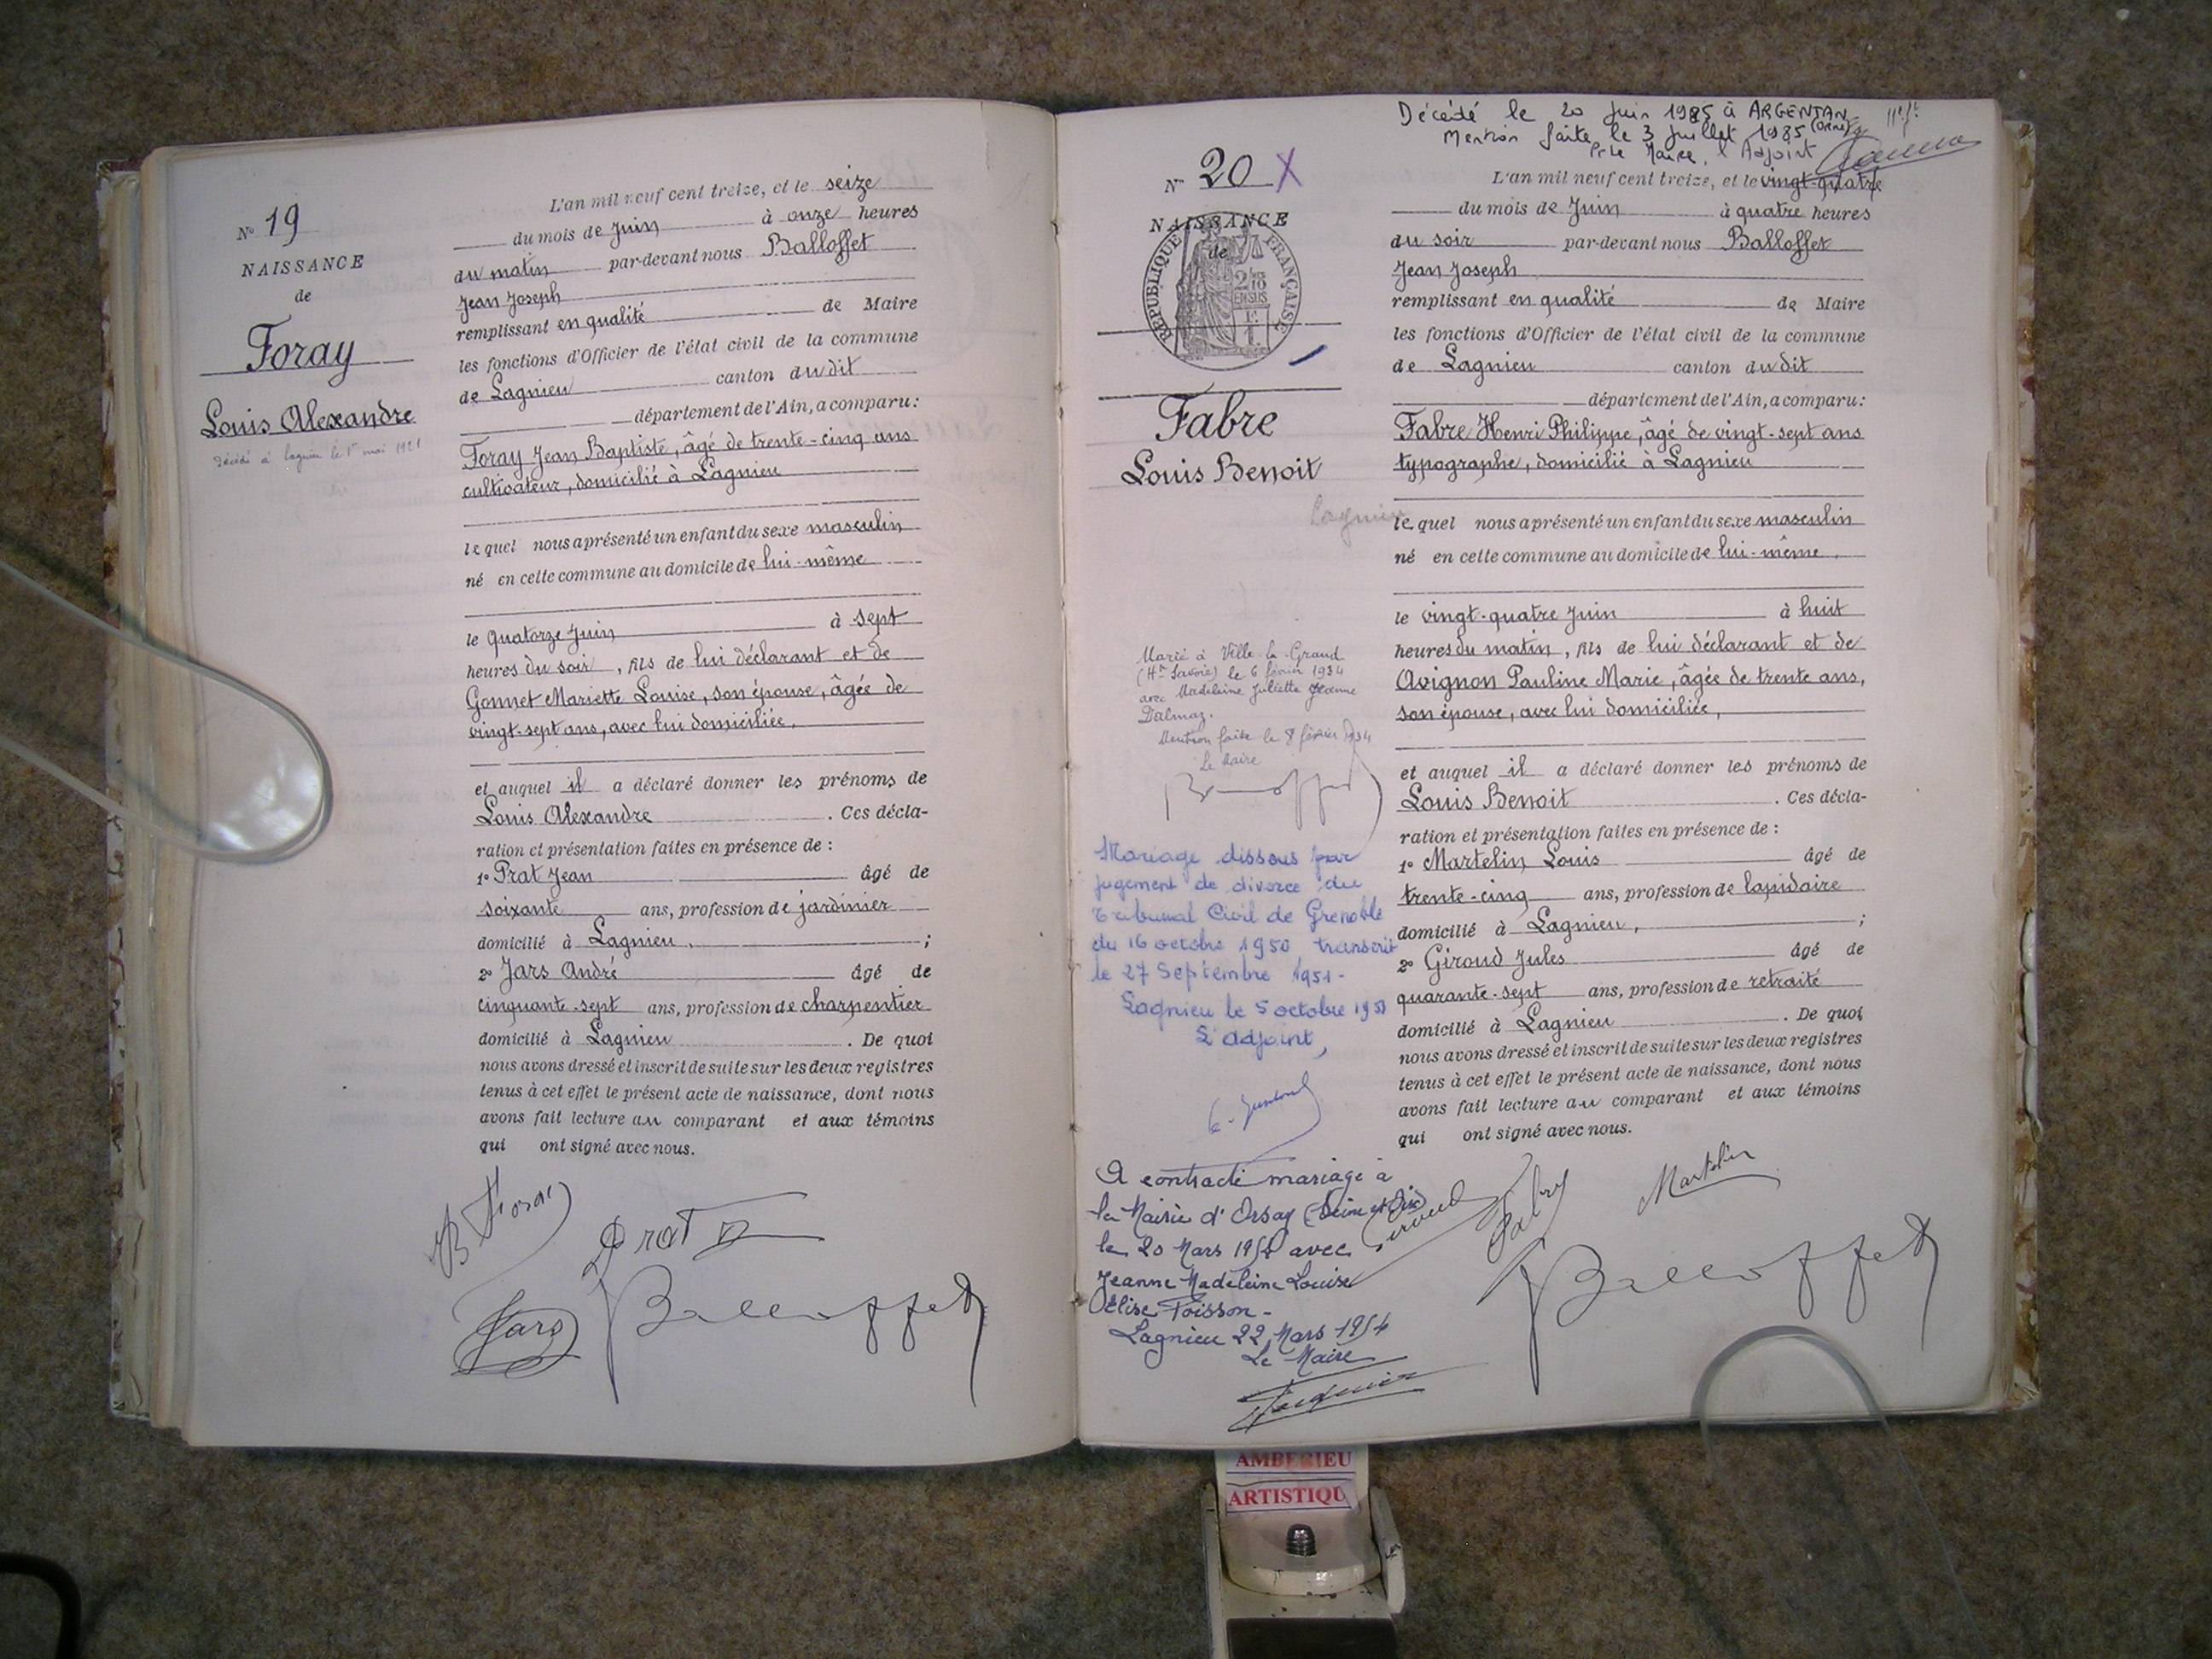 N° 19
NAISSANCE
de
Foray
Louis Alexandre
décédé à Lagnieu le 1er mai 1921
L'an mil neuf cent treize, et le seize
du mois de Juin à onze heures
du matin par-devant nous Balloffet
Jean Joseph
remplissant en qualité de Maire
les fonctions d'Officier de l'état civil de la commune
de Lagnieu canton du dit
département de l'Ain, a comparu:
Foray Jean Baptiste, âgé de trente-cinq ans
cultivateur, domicilié à Lagnieu
lequel nous a présenté un enfant du sexe masculin
né en cette commune au domicile de lui-même
le quatorze Juin à sept
heures du soir, fils de lui déclarant et de
Gonnet Mariette Louise, son épouse, âgée de
vingt-sept ans, avec lui domiciliée,
et auquel il a déclaré donner les prénoms de
Louis Alexandre. Ces décla-
ration et présentation faites en présence de :
1° Prat Jean âgé de
soixante ans, profession de jardinier
domicilié à Lagnieu, ;
2° Jars André âgé de
cinquante-sept ans, profession de charpentier
domicilié à Lagnieu. De quoi
nous avons dressé et inscrit de suite sur les deux registres
tenus à cet effet le présent acte de naissance, dont nous
avons fait lecture au comparant et aux témoins
qui ont signé avec nous.
B Foray
Prat
Jars
Balloffet
Décédé le 20 Juin 1985 à ARGENTAN
(ORNE)
Mention faite le 3 Juillet 1985
Pr le Maire, l'Adjoint
N° 20 X
NAISSANCE
de
REPUBLIQUE FRANÇAISE
2/10
EN SUS
Fabre
Louis Benoit
Lagnieu
Marié à Ville-la-Grand
(Hte Savoie) le 6 février 1934
avec Madeleine Juliette Jeanne
Dalmaz.
Mention faite le 8 février 1934
Le Maire
Balloffet
Mariage dissous par
jugement de divorce du
Tribunal Civil de Grenoble
du 16 octobre 1950 transcrit
le 27 Septembre 1951-
Lagnieu le 5 octobre 1951
L'adjoint,
A contracté mariage à
la Mairie d'Orsay (Seine et Oise)
le 20 Mars 1954 avec
Jeanne Madeleine Louise
Elise Poisson-
Lagnieu 22 Mars 1954
Le Maire
L'an mil neuf cent treize, et le vingt-quatre
du mois de Juin à quatre heures
du soir par-devant nous Balloffet
Jean Joseph
remplissant en qualité de Maire
les fonctions d'Officier de l'état civil de la commune
de Lagnieu canton du dit
département de l'Ain, a comparu:
Fabre Henri Philippe, âgé de vingt-sept ans
typographe, domicilié à Lagnieu
lequel nous a présenté un enfant du sexe masculin
né en cette commune au domicile de lui-même,
le vingt-quatre Juin à huit
heures du matin, fils de lui déclarant et de
Avignon Pauline Marie, âgée de trente ans,
son épouse, avec lui domiciliée,
et auquel il a déclaré donner les prénoms de
Louis Benoit. Ces décla-
ration et présentation faites en présence de :
1° Martelin Louis âgé de
trente-cinq ans, profession de lapidaire
domicilié à Lagnieu, ;
2° Giroud Jules âgé de
quarante-sept ans, profession de retraité
domicilié à Lagnieu. De quoi
nous avons dressé et inscrit de suite sur les deux registres
tenus à cet effet le présent acte de naissance, dont nous
avons fait lecture au comparant et aux témoins
qui ont signé avec nous.
Giroud
Fabre
Martelin
Balloffet
AMBERIEU
ARTISTIQU